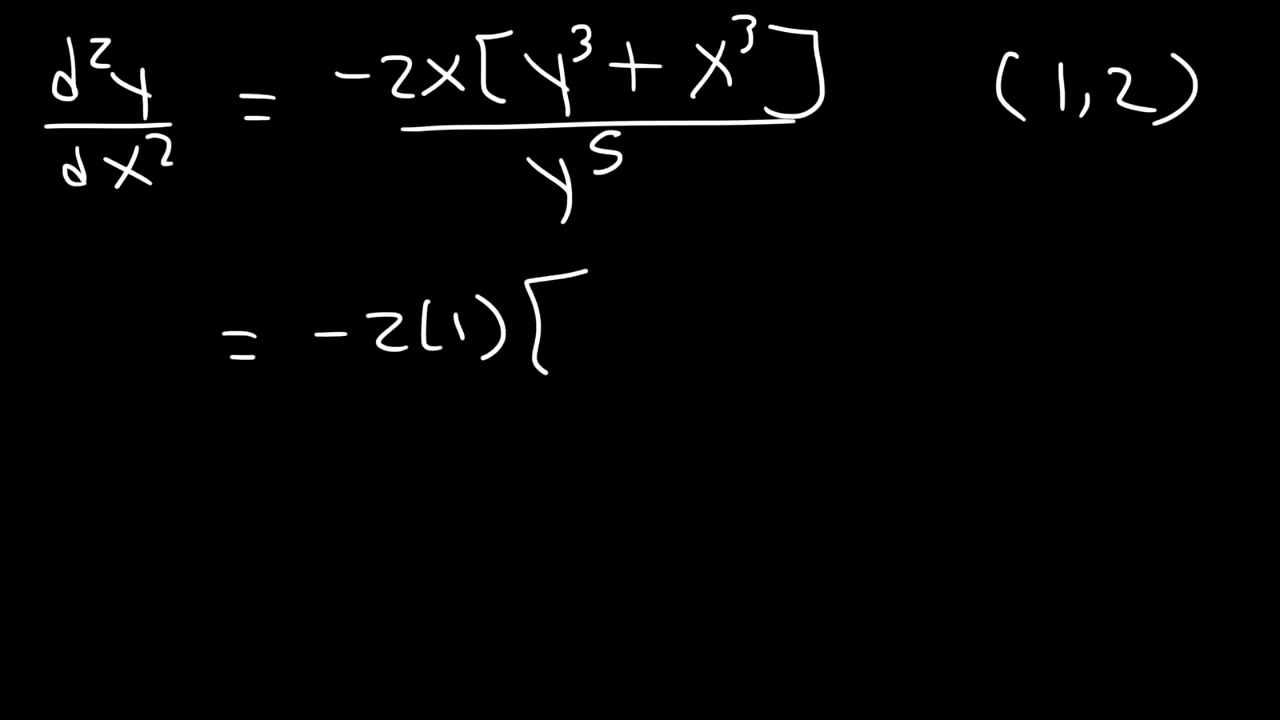 d²y/dx² = -2x[y³ + x³]/y⁵ (1,2)
= -2(1)[